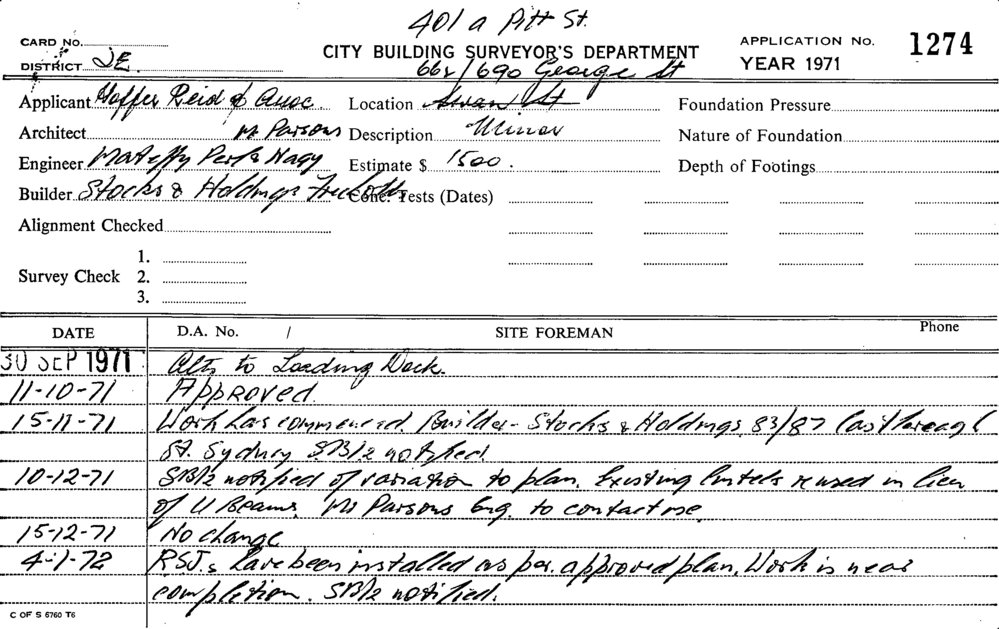 401 a Pitt St.
CARD No.
CITY BUILDING SURVEYOR'S DEPARTMENT
APPLICATION No. 1274
DISTRICT JE.
662/690 George St
YEAR 1971
Applicant Hoffer Reid & Assoc Location Swan St Foundation Pressure
Architect Mr Parsons Description Minor Nature of Foundation
Engineer Mateffy Perl & Nagy Estimate $ 1500. Depth of Footings
Builder Stocks & Holdings Conc. Tests (Dates)
Alignment Checked
1.
Survey Check 2.
3.
DATE D.A. No. / SITE FOREMAN Phone
30 SEP 1971 Alts to Loading Dock.
11-10-71 Approved.
15-11-71 Work has commenced. Builder - Stocks & Holdings 83/87 Castlereagh
St. Sydney SB/2 notified.
10-12-71 SB/2 notified of variation to plan. Existing lintels reused in lieu
of U Beams. Mr Parsons Eng. to contact me.
15-12-71 No change
4-1-72 RSJ.s have been installed as per approved plan. Work is near
completion. SB/2 notified.
C OF S 5760 T6